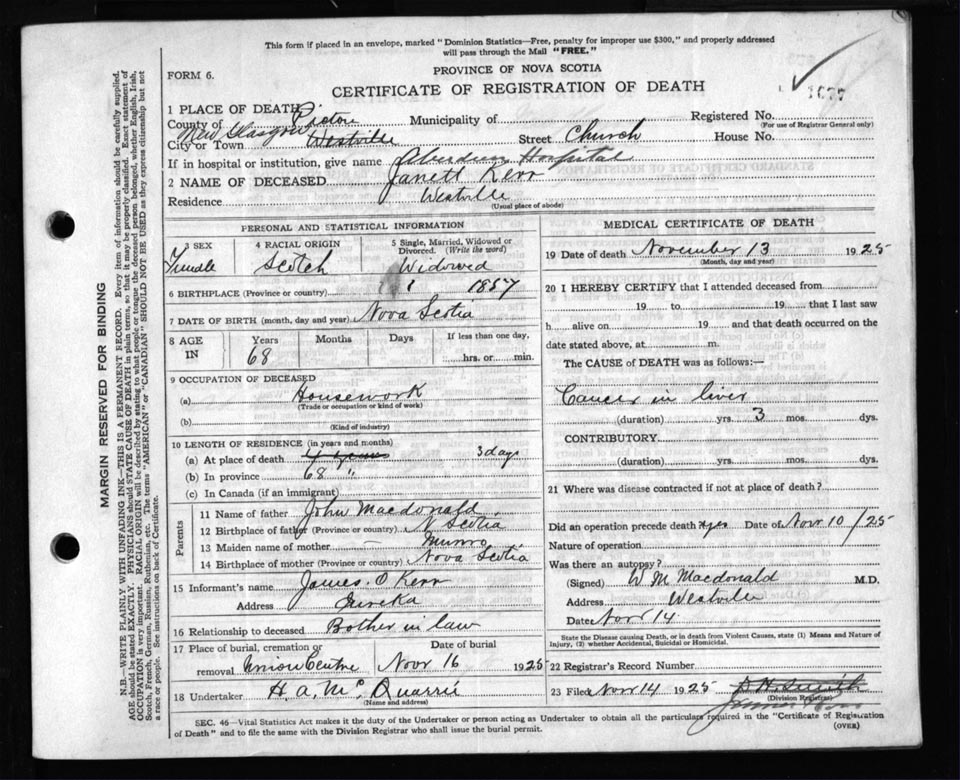 This form if placed in an envelope, marked "Dominion Statistics—Free, penalty for improper use $300," and properly addressed
will pass through the Mail "FREE."
PROVINCE OF NOVA SCOTIA
FORM 6.
CERTIFICATE OF REGISTRATION OF DEATH
1677
1 PLACE OF DEATH
County of Pictou Municipality of Registered No.
(For use of Registrar General only)
New Glasgow
City or Town Westville Street Church House No.
If in hospital or institution, give name Aberdeen Hospital
2 NAME OF DECEASED Janett Kerr
Residence Westville
(Usual place of abode)
PERSONAL AND STATISTICAL INFORMATION
3 SEX 4 RACIAL ORIGIN 5 Single, Married, Widowed or Divorced. (Write the word)
Female Scotch Widowed
6 BIRTHPLACE (Province or country) 1857
7 DATE OF BIRTH (month, day and year) Nova Scotia
8 AGE IN Years Months Days If less than one day,
68 hrs. or min.
9 OCCUPATION OF DECEASED
(a) Housework
(Trade or occupation or kind of work)
(b)
(Kind of industry)
10 LENGTH OF RESIDENCE (in years and months)
(a) At place of death 4 years 3 days
(b) In province 68 "
(c) In Canada (if an immigrant)
Parents
11 Name of father John Macdonald
12 Birthplace of father (Province or country) N Scotia
13 Maiden name of mother — Munro
14 Birthplace of mother (Province or country) Nova Scotia
15 Informant's name James. O Kerr
Address Eureka
16 Relationship to deceased Bother in law
17 Place of burial, cremation or Date of burial
removal Union Centre Nov 16 1925
18 Undertaker H A. Mc Quarrie
(Name and address)
MEDICAL CERTIFICATE OF DEATH
19 Date of death November 13 1925
(Month, day and year)
20 I HEREBY CERTIFY that I attended deceased from
19 to 19 that I last saw
h alive on 19 and that death occurred on the
date stated above, at m.
The CAUSE of DEATH was as follows:—
Cancer in liver
(duration) yrs. 3 mos. dys.
CONTRIBUTORY
(duration) yrs. mos. dys.
21 Where was disease contracted if not at place of death?
Did an operation precede death? yes Date of Nov 10/25
Nature of operation
Was there an autopsy?
(Signed) W M Macdonald M.D.
Address Westville
Date Nov 14
State the Disease causing Death, or in death from Violent Causes, state (1) Means and Nature of
Injury, (2) whether Accidental, Suicidal or Homicidal.
22 Registrar's Record Number
23 Filed Nov 14 1925
(Division Registrar)
SEC. 46—Vital Statistics Act makes it the duty of the Undertaker or person acting as Undertaker to obtain all the particulars required in the "Certificate of Registration
of Death" and to file the same with the Division Registrar who shall issue the burial permit.
(OVER)
MARGIN RESERVED FOR BINDING
N.B.—WRITE PLAINLY WITH UNFADING INK—THIS IS A PERMANENT RECORD. Every item of information should be carefully supplied.
AGE should be stated EXACTLY. PHYSICIANS should STATE CAUSE OF DEATH in plain terms, so that it may be properly classified. Exact statement of
OCCUPATION is very important. RACIAL ORIGIN will be described by stating to what people or tongue the deceased person belonged, whether English, Irish,
Scotch, French, German, Russian, Ruthenian, etc. The terms "AMERICAN" or "CANADIAN" SHOULD NOT BE USED as they express citizenship but not
a race or people. See instructions on back of Certificate.